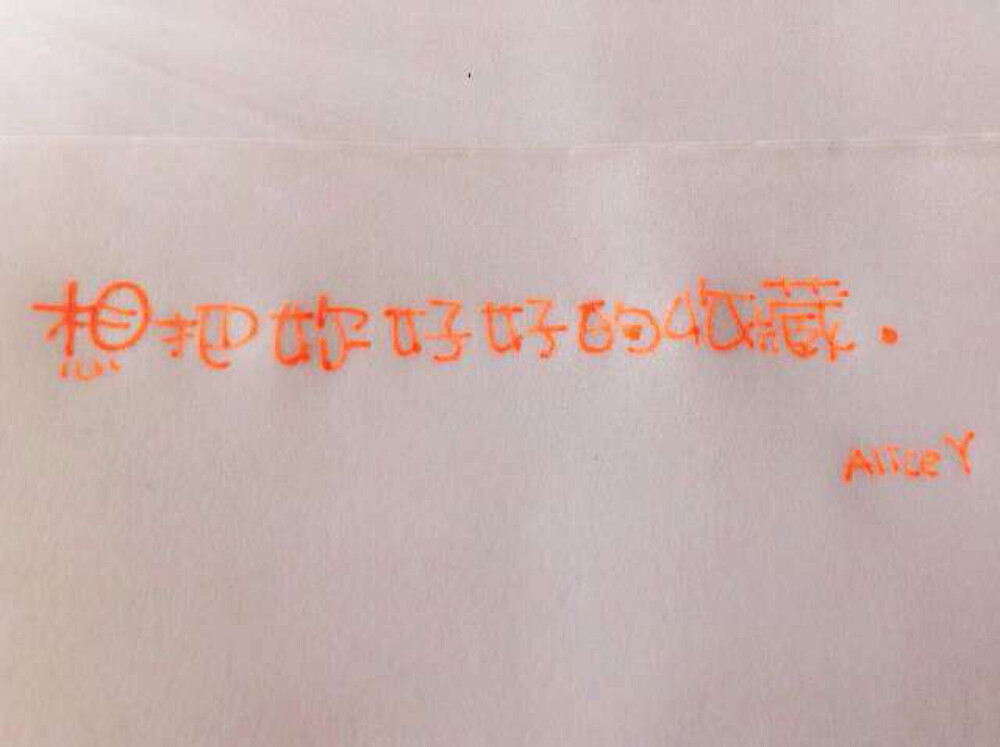 想把妳好好的收藏.
AliceY